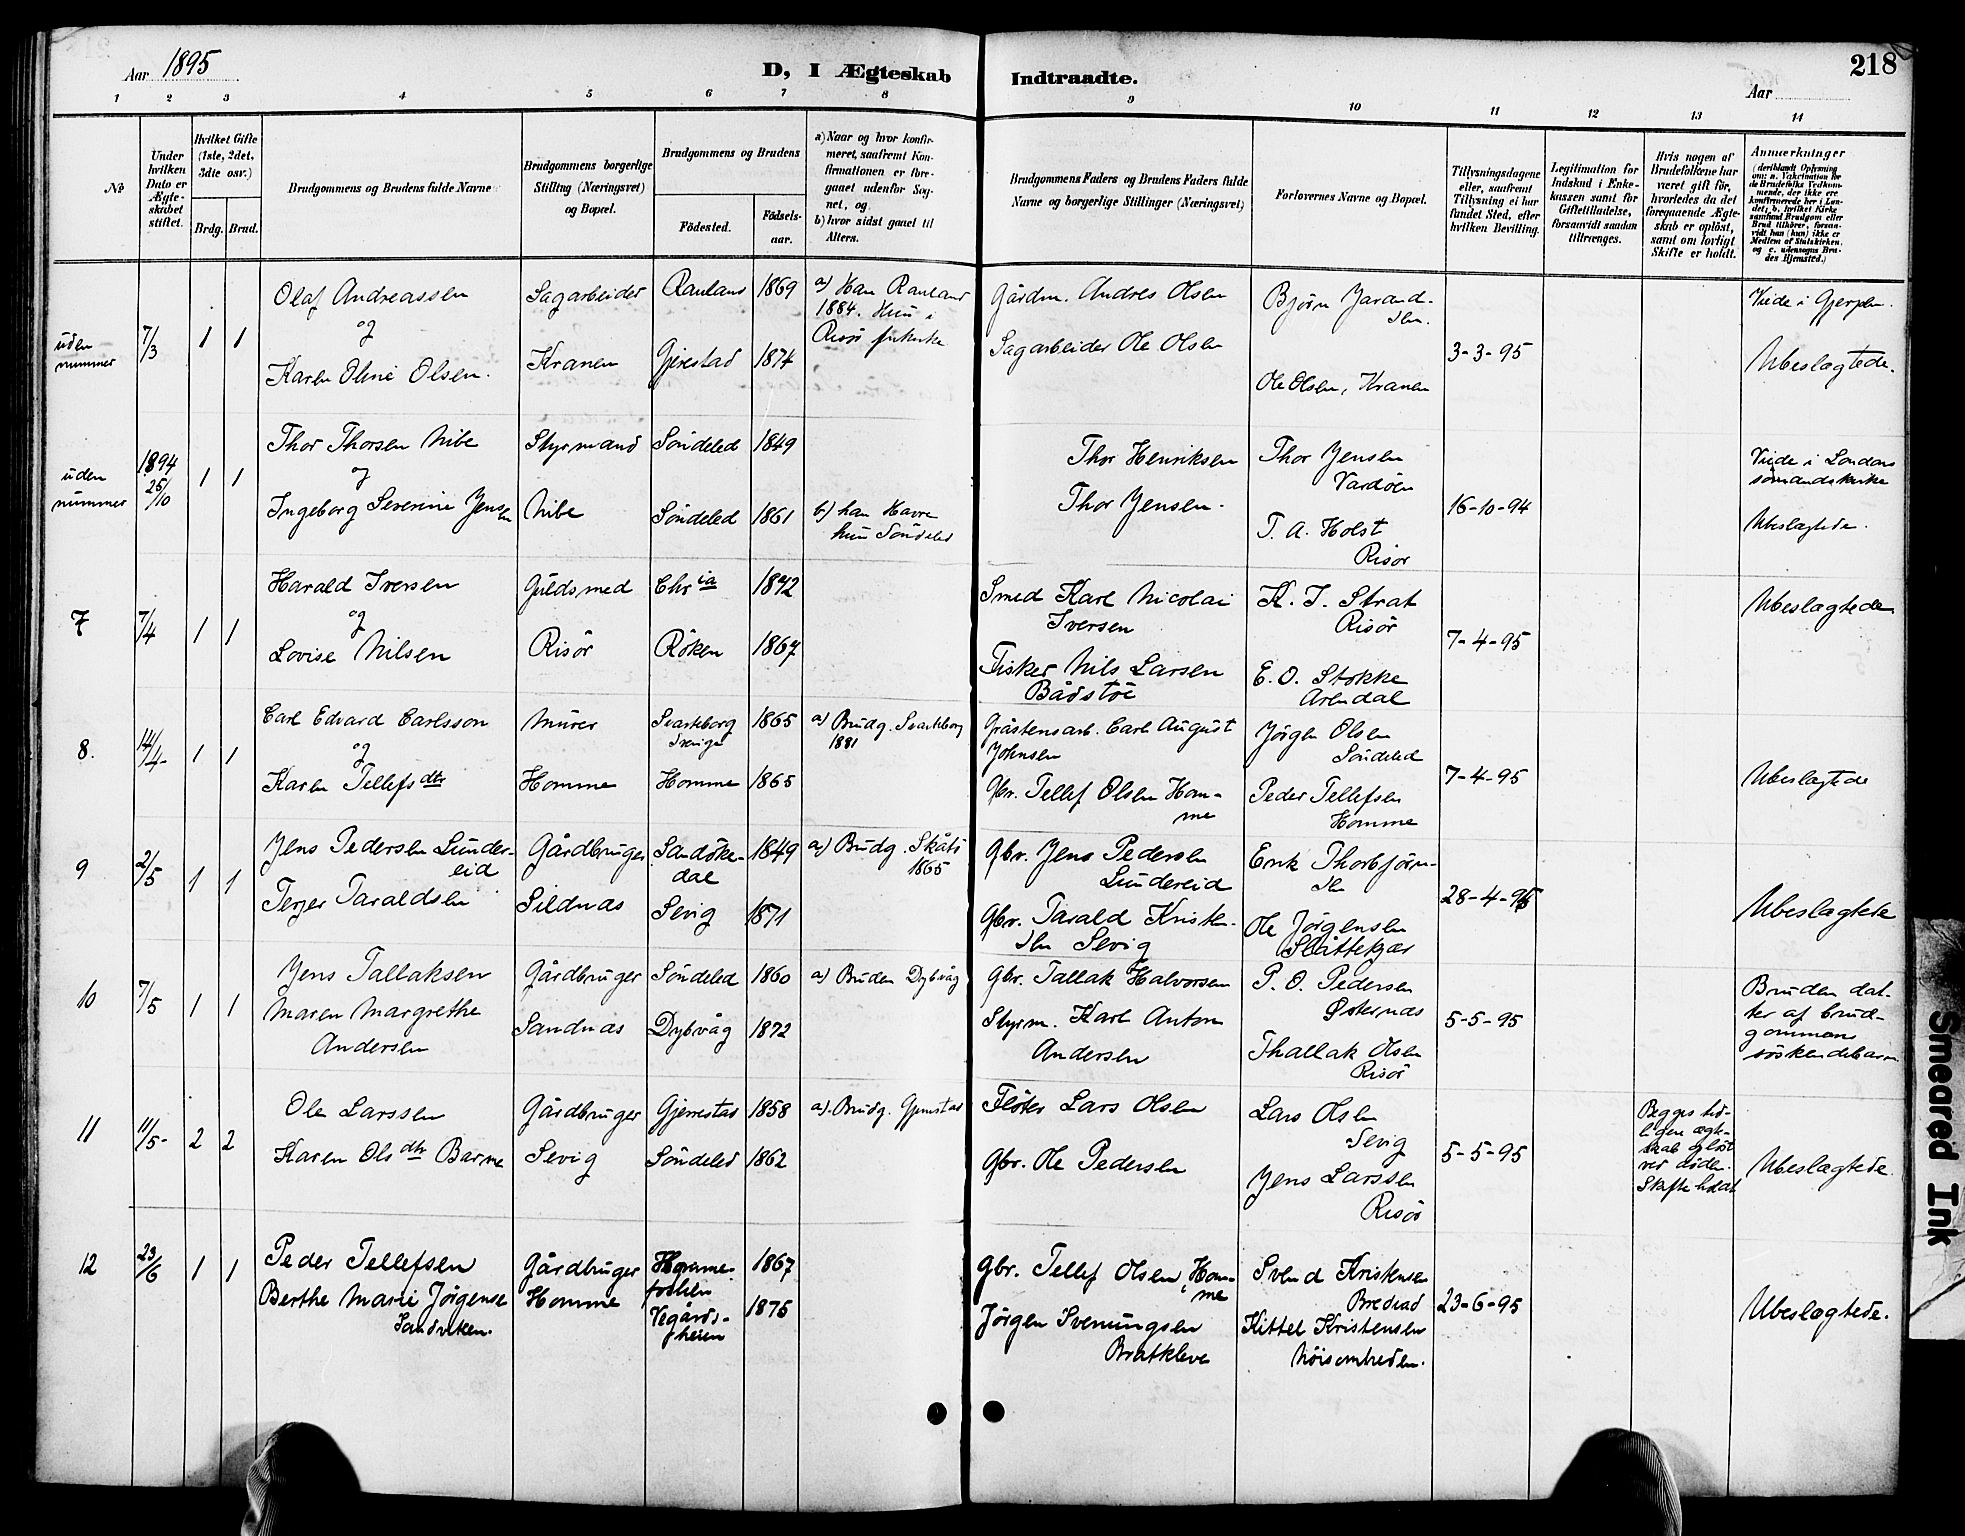 Aar 1895
D, I Ægteskab
Indtraadte.
Aar
218
1 2 3 4 5 6 7 8 9 10 11 12 13 14
No
Under hvilken Dato er Ægteskabet stiftet.
Hvilket Gifte (1ste, 2det, 3dte osv.)
Brdg. Brud.
Brudgommens og Brudens fulde Navne
Brudgommens borgerlige Stilling (Næringsvei) og Bopæl.
Brudgommens og Brudens
Födested.
Födsels-aar.
a) Naar og hvor konfirmeret, saafremt Konfirmationen er foregaaet udenfor Sognet, og
b) hvor sidst gaaet til Alters.
Brudgommens Faders og Brudens Faders fulde Navne og borgerlige Stillinger (Næringsvei)
Forlovernes Navne og Bopæl.
Tillysningsdagene eller, saafremt Tillysning ei har fundet Sted, efter hvilken Bevilling.
Legitimation for Indskud i Enkekassen samt for Giftetilladelse, forsaavidt saadan tiltrænges.
Hvis nogen af Brudefolkene har været gift för, hvorledes da det foregaaende Ægteskab er oplöst, samt om lovligt Skifte er holdt.
Anmærkninger
(deriblandt Oplysning om: a. Vakcination for de Brudefolks Vedkommende, der ikke ere konfirmerede her i Landet; b. hvilket Kirkesamfund Brudgom eller Brud tilhörer, forsaavidt han (hun) ikke er Medlem af Statskirken, og c. udensogns Brudes Hjemsted.)
uden nummer 7/3 1 1
Olaf Andreassen
og
Karen Oline Olsen.
Sagarbeider
Kranen
Rauland 1869
Gjerestad 1874
a) Han Rauland
1884. Hun i
Risör
Gårdm. Andres Olsen
Sagarbeider Ole Olsen
Bjørn Jarand-
sen.
Ole Olsen, Kranen
3-3-95
Viede i Gjerpen.
Ubeslægtede.
uden nummer 1894 25/10 1 1
Thor Thorsen Nibe
og
Ingeborg Severine Jensen
Styrmand
Nibe
Söndeled 1849
Söndeled 1861
b) han Havre
hun Söndeled
Thor Henriksen
Thor Jensen.
Thor Jensen
Vardöen
T. A. Holst
Risör
16-10-94
Viede i Londons
sömandskirke
Ubeslægtede.
7 7/4 1 1
Harald Iversen
og
Lovise Nilsen
Guldsmed
Risör
Chr ia 1872
Röken 1867
Smed Karl Nicolai
Iversen
Fisker Nils Larsen
Bådstöe
K. J. Strat
Risör
E. O. Stokke
Arendal
7-4-95
Ubeslægtede
8. 14/4 1 1
Carl Edvard Carlsson
og
Karen Tellefs dtr
Murer
Homme
Svarteborg
Sverige 1865
Homme 1865
a) Brudg. Svarteborg
1881
Gråstensarb. Carl August
Johnsen
Gbr. Tellef Olsen Hom-
me
Jörgen Olsen
Söndeled
Peder Tellefsen
Homme
7-4-95
Ubeslægtede
9 2/5 1 1
Jens Pedersen Lunder-
eid
Terjer Taraldsen
Gårdbruger
Sildnæs
Sandöke-
dal 1849
Sevig 1871
a) Brudg. Skåtö
1865
Gbr. Jens Pedersen
Lundereid
Gbr. Tarald Kristen-
sen Sevig
Erik Thorbjörn-
sen
Ole Jørgensen
Slåttekjær
28-4-95
Ubeslægtede
10 7/5 1 1
Jens Tallaksen
Maren Margrethe
Andersen
Gårdbruger
Sandnæs
Söndeled 1860
Dybvåg 1872
a) Bruden Dybvåg
Gbr. Tallak Halvorsen
Styrm. Karl Anton
Andersen
P. O. Pedersen
Østernæs
Thallak Olsen
Risör
5-5-95
Bruden dat-
ter af brud-
gommens
söskendebarn
11 11/5 2 2
Ole Larssen
Karen Ols dtr Barme
Gårdbruger
Sevig
Gjerrestad 1858
Söndeled 1862
a) Brudg. Gjerrestad
Flöter Lars Olsen
Gbr. Ole Pedersen
Lars Olsen
Sevig
Jens Larssen
Risör
5-5-95
Begges tid-
ligere ægte-
skab oplöst
ved döden.
Skifte holdt
Ubeslægtede.
12 23/6 1 1
Peder Tellefsen
Berthe Marie Jørgense
Sandviken.
Gårdbruger
Homme
Homme 1867
Vegårds-
heien 1875
Gbr. Tellef Olsen, Hom-
me
Jörgen Svenungsen
Bratkleve
Svend Kristensen
Kittel Kristensen
Nöisomheden.
23-6-95
Ubeslægtede.
Smeared Ink